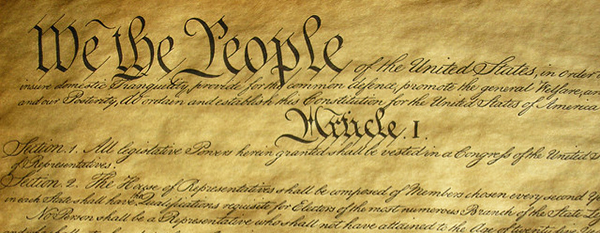 We the People of the United States, in Order
insure domestic Tranquility, provide for the common defence, promote the general Welfare, and
and our Posterity, do ordain and establish this Constitution for the United States of America
Article. I.
Section. 1. All legislative Powers herein granted shall be vested in a Congress of the United
of Representatives.
Section. 2. The House of Representatives shall be composed of Members chosen every second
in each State shall have the Qualifications requisite for Electors of the most numerous Branch of the State
No Person shall be a Representative who shall not have attained to the Age of twenty five